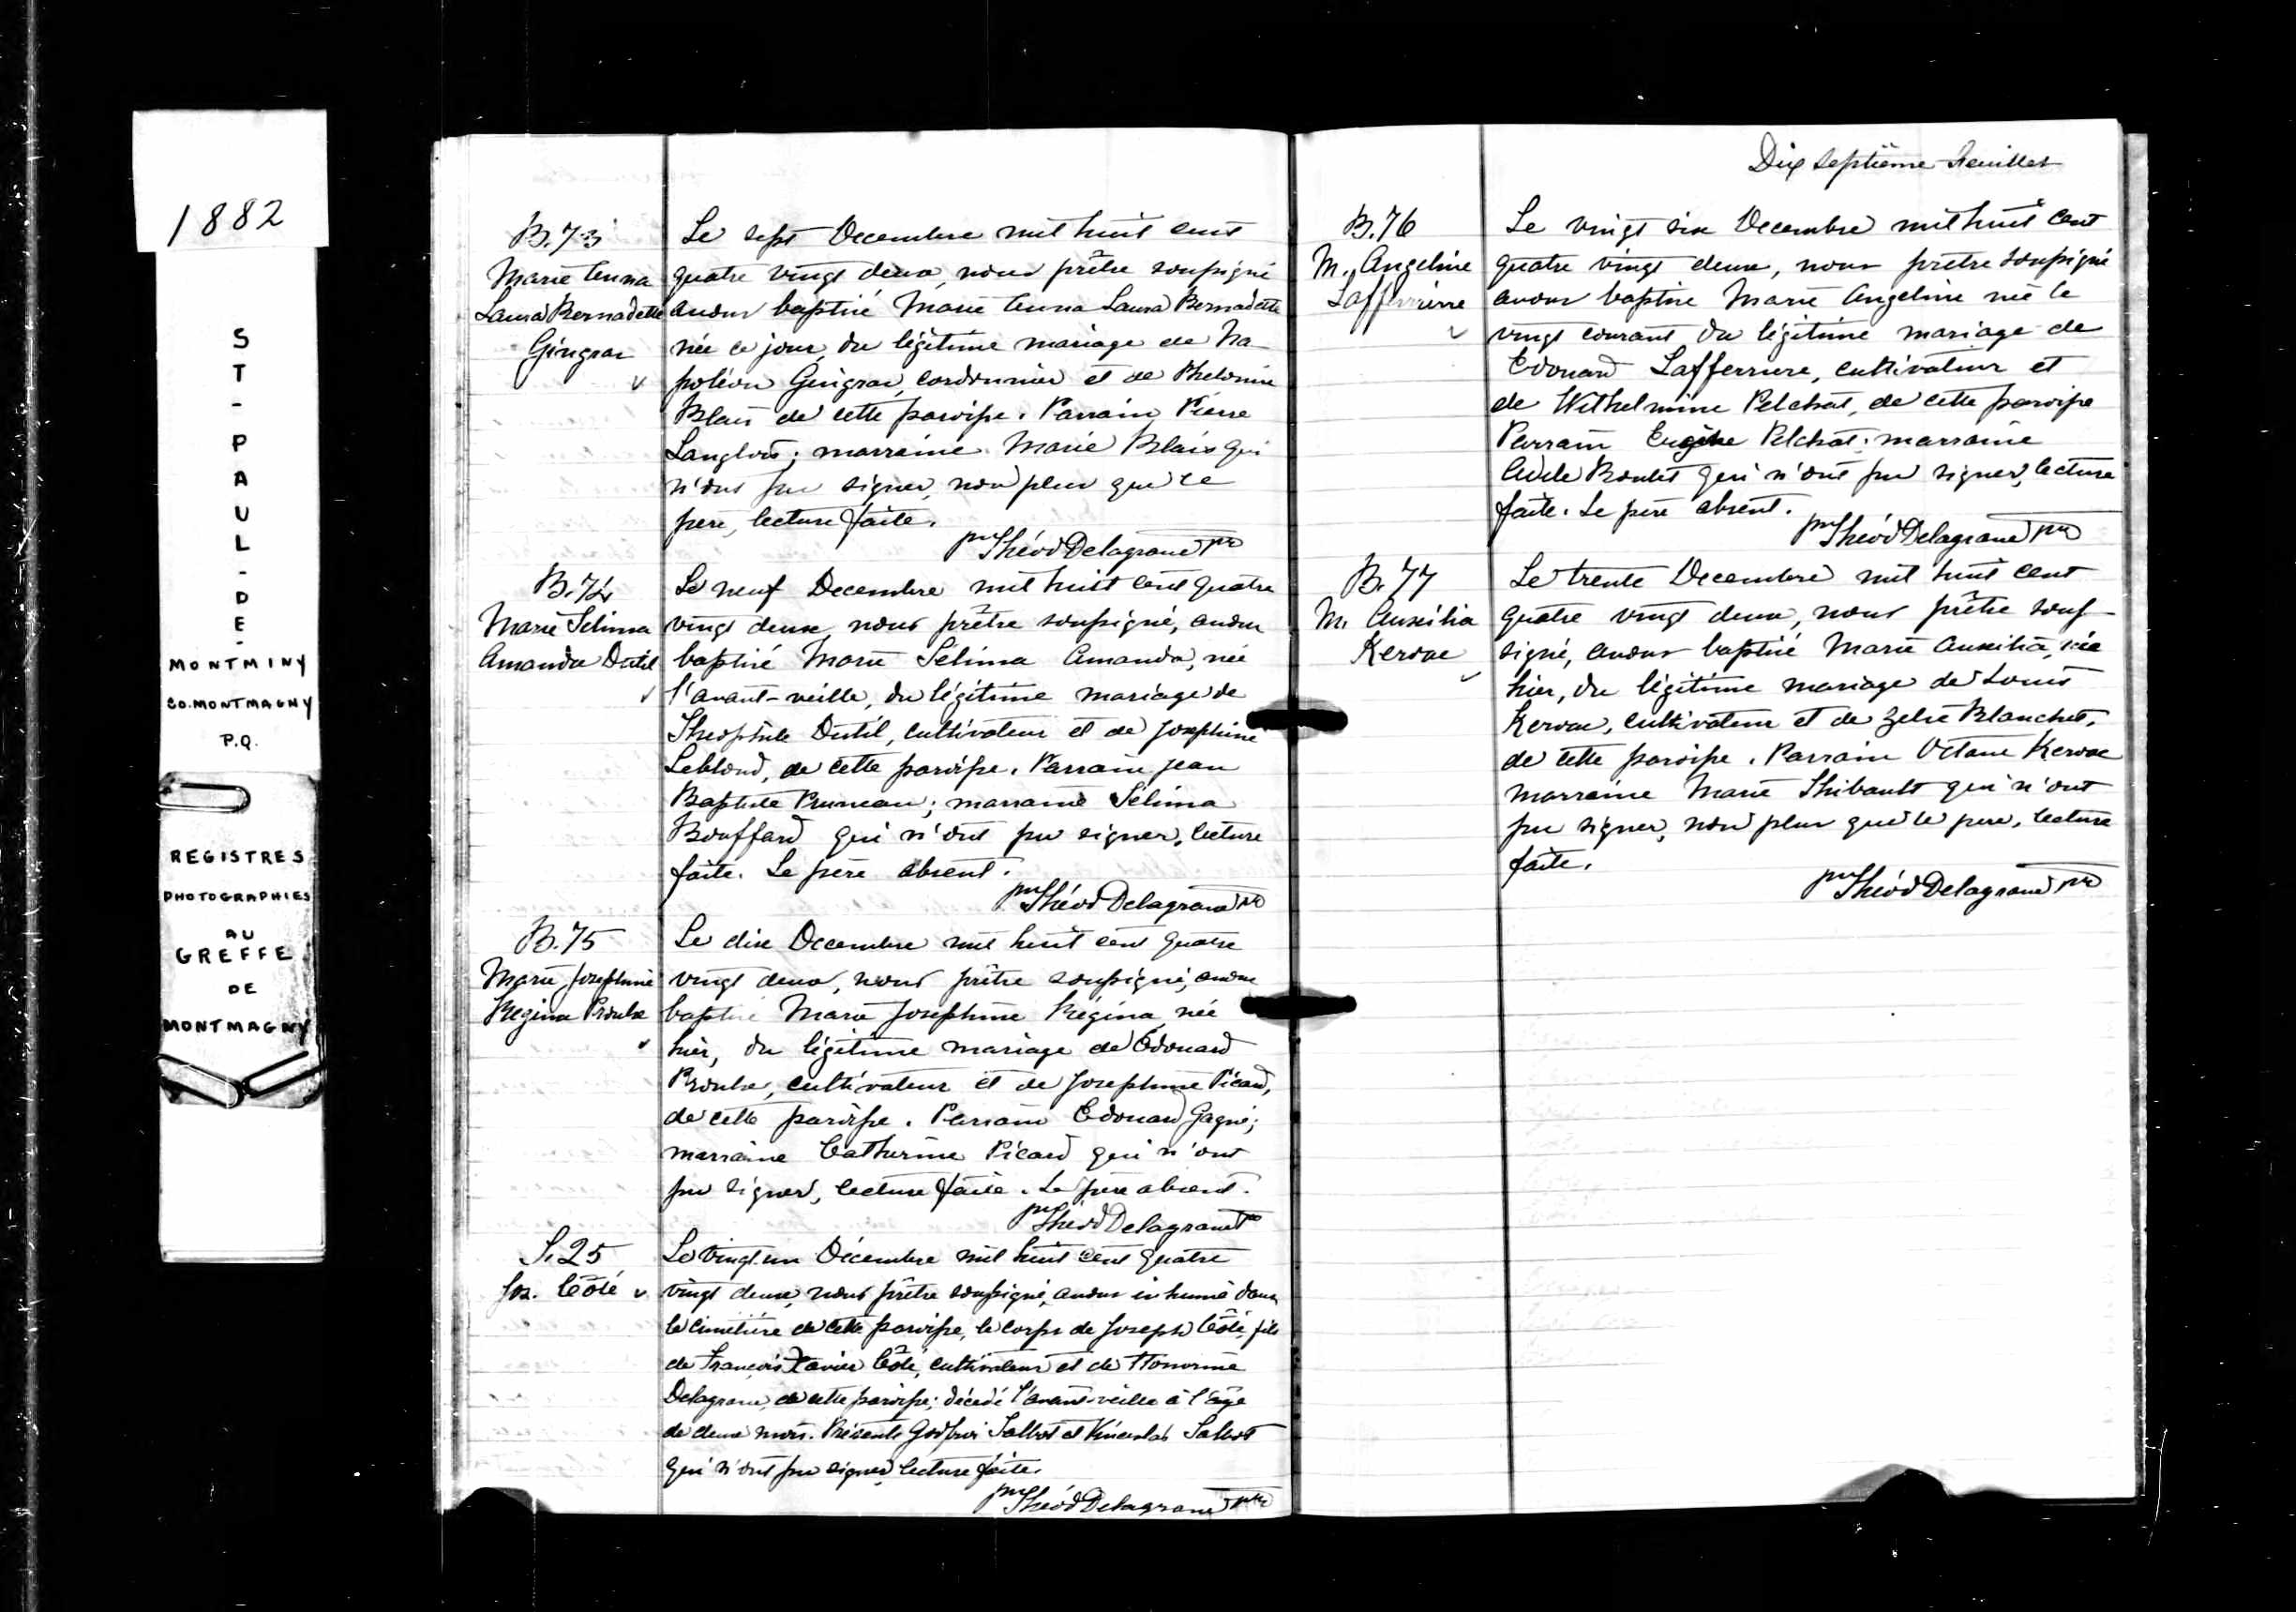 1882
ST-PAUL-DE-
MONTMINY
CO. MONTMAGNY
P.Q.
REGISTRES
PHOTOGRAPHIES
AU
GREFFE
DE
MONTMAGNY
B. 73
Marie Anna
Laura Bernadette
Gingras
Le sept Decembre mil huit cent
quatre vingt deux, nous prêtre soussigné
avons baptisé Marie Anna Laura Bernadette
née ce jour, du légitime mariage de Na-
poléon Gingras, cordonnier et de Philomine
Blais de cette paroisse. Parrain Pierre
Langlois; marraine Marie Blais qui
n'ont pu signer, non plus que le
père, lecture faite.
Théod Delagrave ptre
B. 74
Marie Sélima
Amanda Dutil
Le neuf Decembre mil huit cent quatre
vingt deux, nous prêtre soussigné, avons
baptisé Marie Sélima Amanda, née
l'avant-veille, du légitime mariage de
Théophile Dutil, cultivateur et de Josephine
Leblond, de cette paroisse. Parrain Jean
Baptiste Pruneau; marraine Sélima
Bouffard qui n'ont pu signer, lecture
faite. Le père absent.
Théod Delagrave ptre
B. 75
Marie Josephine
Régina Proulx
Le dix Decembre mil huit cent quatre
vingt deux, nous prêtre soussigné, avons
baptisé Marie Josephine Régina née
hier, du légitime mariage de Edouard
Proulx, cultivateur et de Josephine Picard,
de cette paroisse. Parrain Edouard Gagné;
marraine Catherine Picard qui n'ont
pu signer, lecture faite. Le père absent.
Théod Delagrave ptre
S. 25
Jos. Côté
Le vingt-un Décembre mil huit cent quatre
vingt deux, nous prêtre soussigné, avons inhumé dans
le cimetière de cette paroisse, le corps de Joseph Côté, fils
de François Xavier Côté, cultivateur et de Honorine
Delagrave, de cette paroisse; décédé l'avant-veille à l'âge
de deux mois. Présents Godfroi Talbot et Vinceslas Talbot
qui n'ont pu signer, lecture faite.
Théod Delagrave ptre
Dix septième Feuillet
B. 76
M. Angeline
Lafferriere
Le vingt six Decembre mil huit cent
quatre vingt deux, nous prêtre soussigné
avons baptisé Marie Angeline née le
vingt courant du légitime mariage de
Edouard Lafferriere, cultivateur et
de Wilhelmine Pelchat, de cette paroisse
Parrain Eugène Pelchat; marraine
Boulet qui n'ont pu signer, lecture
faite. Le père absent.
Théod Delagrave ptre
B. 77
M. Auxilia
Keroac
Le trente Decembre mil huit cent
quatre vingt deux, nous prêtre sous-
signé, avons baptisé Marie Auxilia, née
hier, du légitime mariage de Louis
Keroac, cultivateur et de Zelie Blanchet,
de cette paroisse. Parrain Octave Keroac
marraine Marie Thibault qui n'ont
pu signer, non plus que le père, lecture
faite.
Théod Delagrave ptre